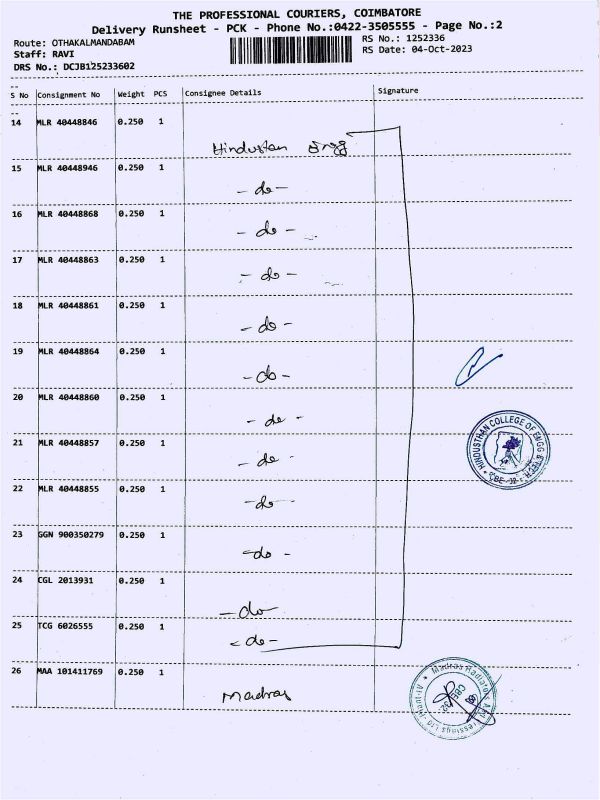 THE PROFESSIONAL COURIERS, COIMBATORE
Delivery Runsheet - PCK - Phone No.:0422-3505555 - Page No.:2
Route: OTHAKALMANDABAM
Staff: RAVI
DRS No.: DCJB125233602
RS No.: 1252336
RS Date: 04-Oct-2023
S No Consignment No Weight PCS Consignee Details Signature
14 MLR 40448846 0.250 1
Hindustan Engg
15 MLR 40448946 0.250 1
- do -
16 MLR 40448868 0.250 1
- do -
17 MLR 40448863 0.250 1
- do -
18 MLR 40448861 0.250 1
- do -
19 MLR 40448864 0.250 1
- do -
20 MLR 40448860 0.250 1
- do -
21 MLR 40448857 0.250 1
- do -
22 MLR 40448855 0.250 1
- do -
23 GGN 900350279 0.250 1
- do -
24 CGL 2013931 0.250 1
- do -
25 TCG 6026555 0.250 1
- do -
26 MAA 101411769 0.250 1
Madras
HINDUSTHAN COLLEGE OF ENGG & TECH
CBE - 32
Madras Radiator